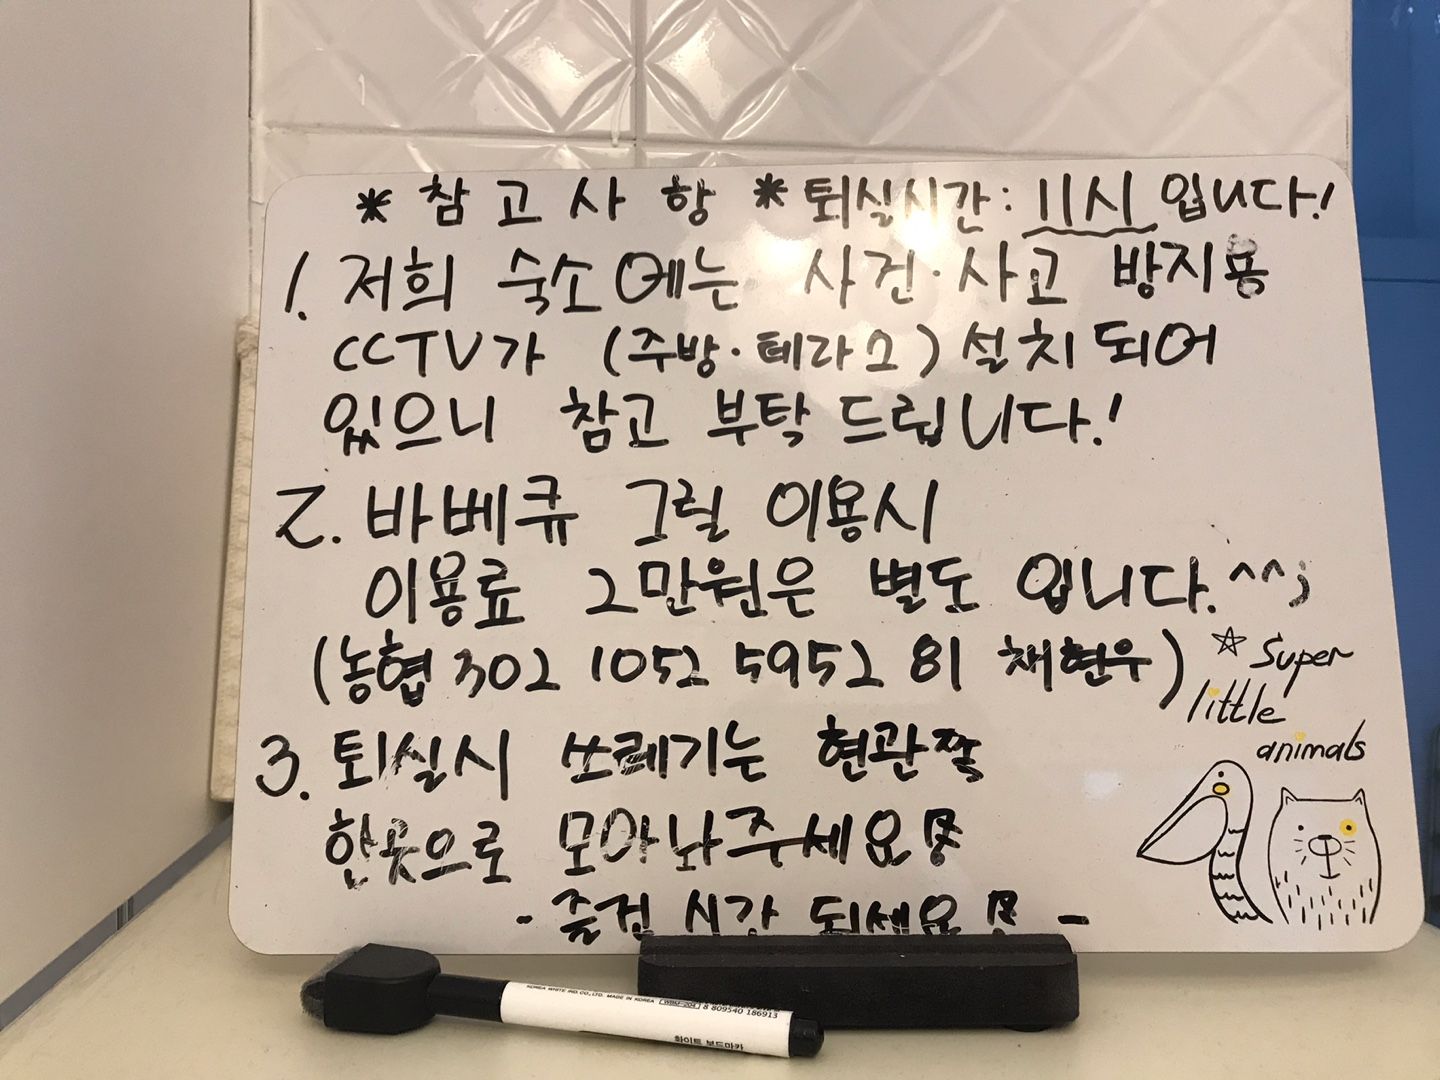 * 참고사항 * 퇴실시간: 11시 입니다!
1. 저희 숙소에는 사건·사고 방지용
CCTV가 (주방·테라스) 설치되어
있으니 참고 부탁드립니다!
2. 바베큐 그릴 이용시
이용료 2만원은 별도 입니다.^^;
(농협 302 1052 5952 81 채현우)
3. 퇴실시 쓰레기는 현관쪽
한곳으로 모아놔주세요
- 즐건 시간 되세요 -
☆ Super
little
animals
KOREA WHITE IND.CO.,LTD. MADE IN KOREA WBM-204 8 809540 186913
화이트 보드마카